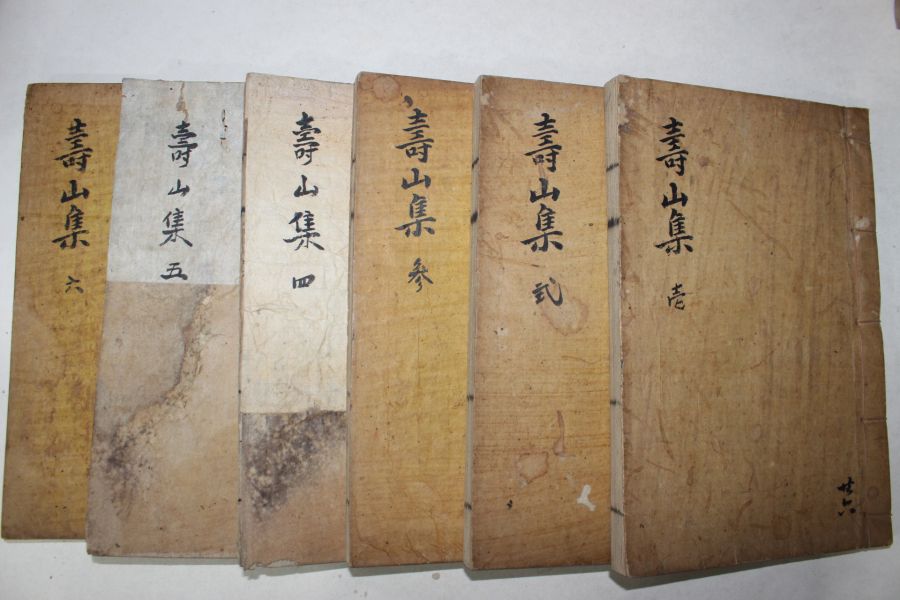 壽山集 壱
共六
壽山集 弍
壽山集 參
壽山集 四
壽山集 五
壽山集 六